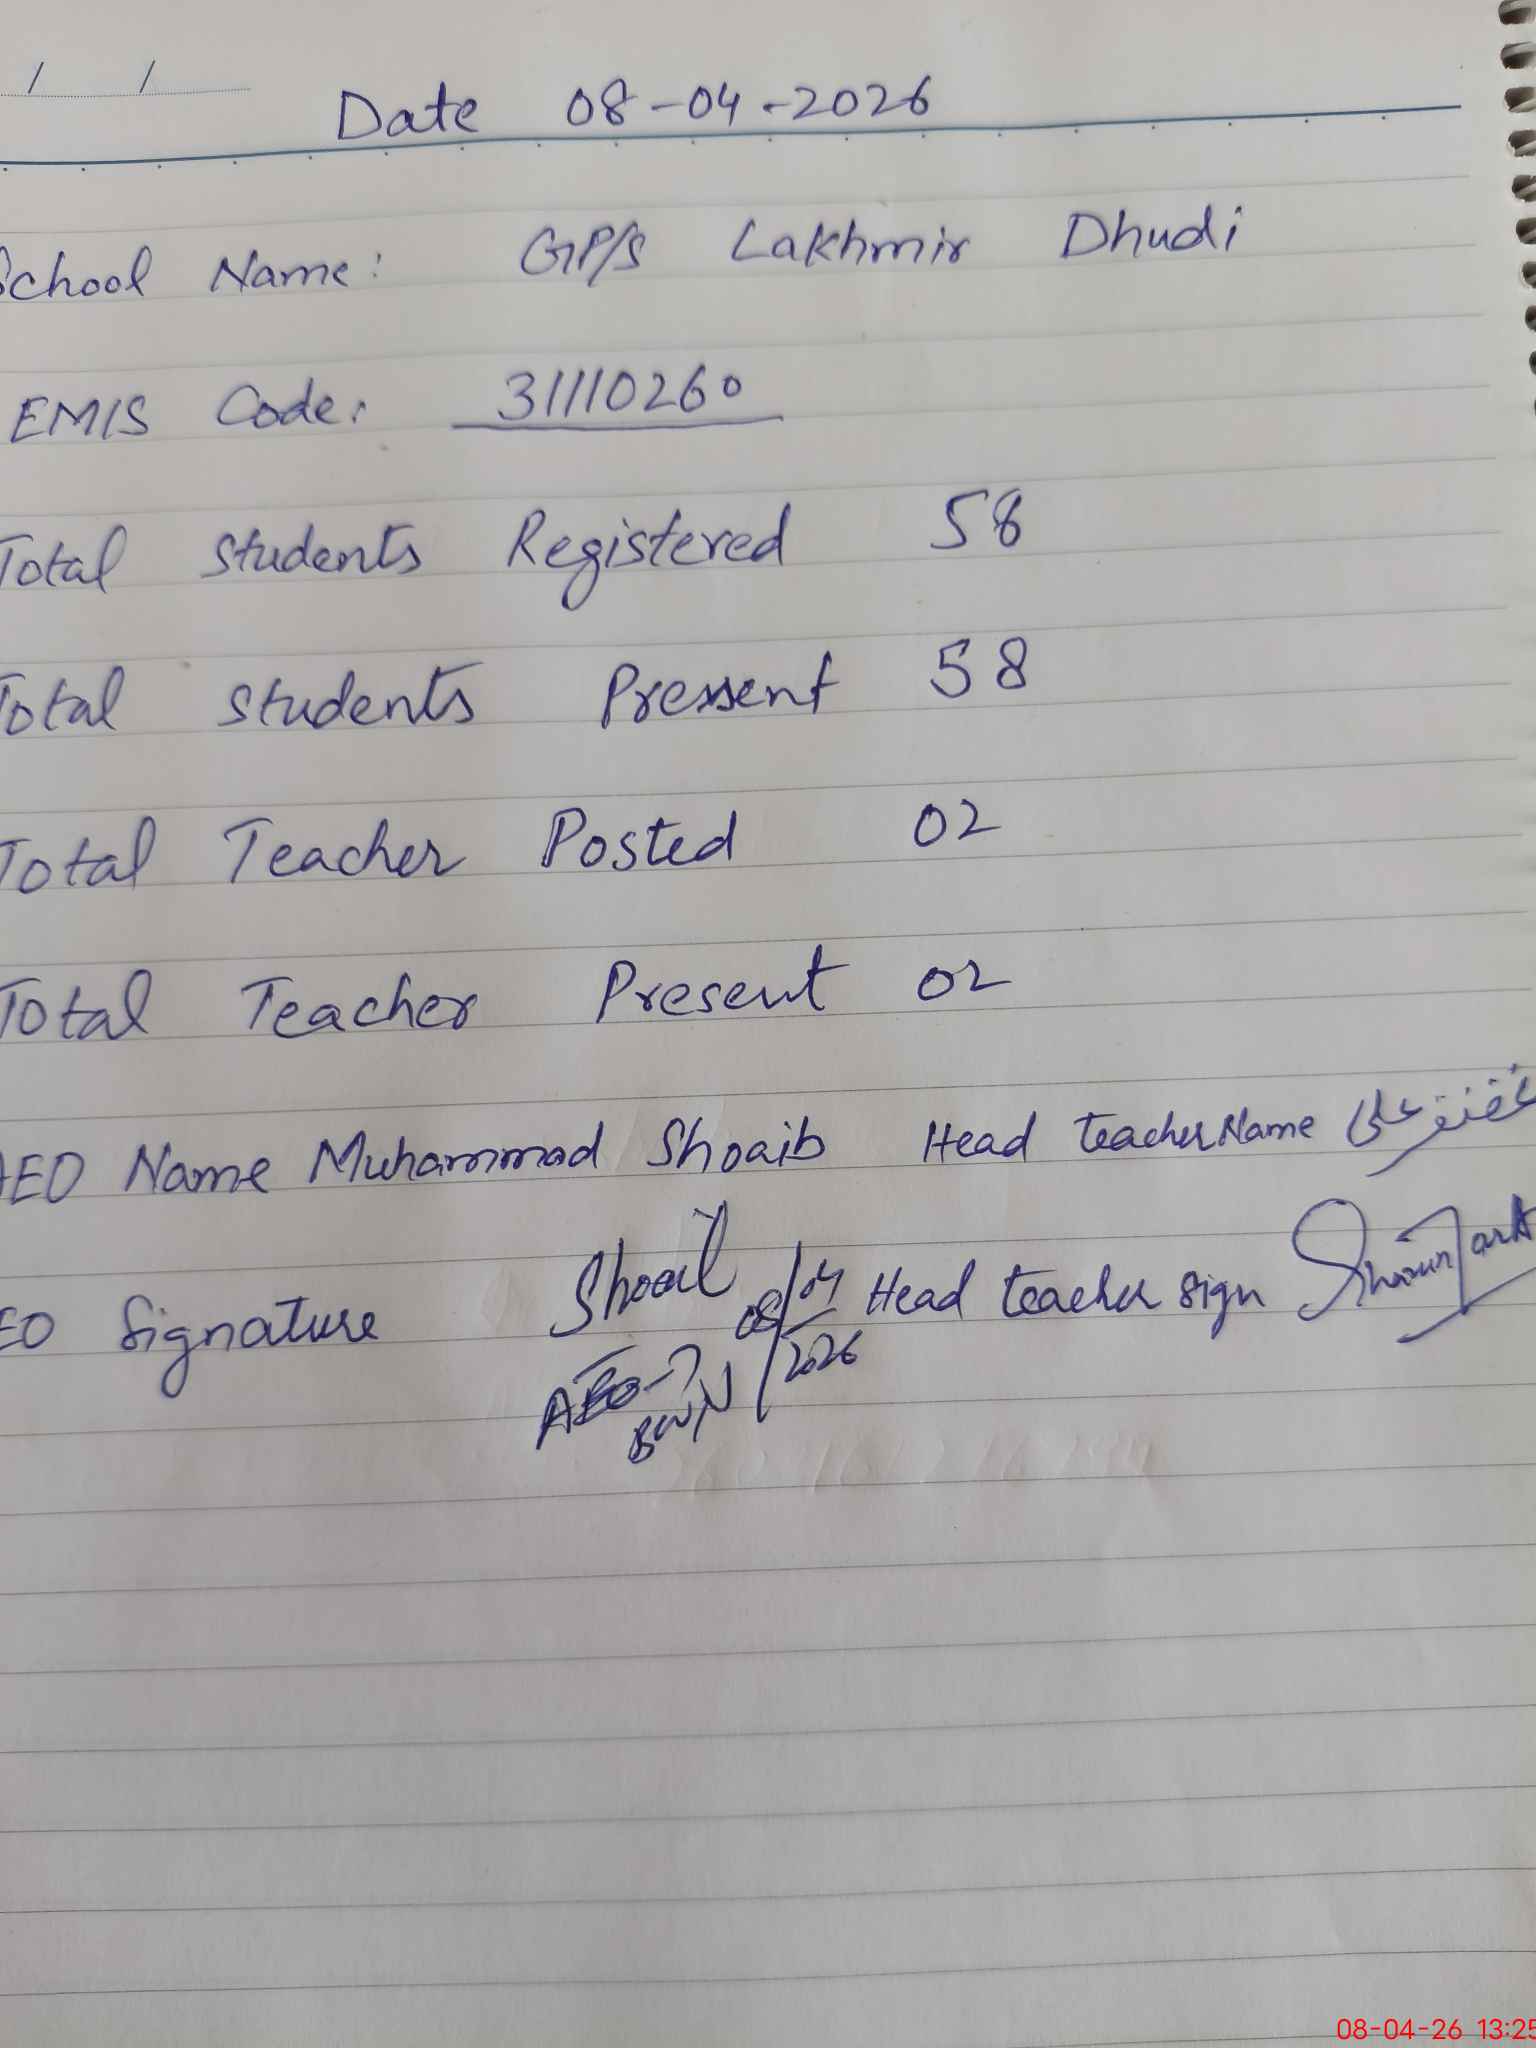 / /
Date 08-04-2026
School Name: GP/S Lakhmir Dhudi
EMIS Code: 31110260
Total Students Registered 58
Total Students Pressent 58
Total Teacher Posted 02
Total Teacher Present 02
AEO Name Muhammad Shoaib Head teacher Name غضنفر علی
EO Signature Shoaib 08/04/2026 Head teacher sign
AEO-
08-04-26 13:25